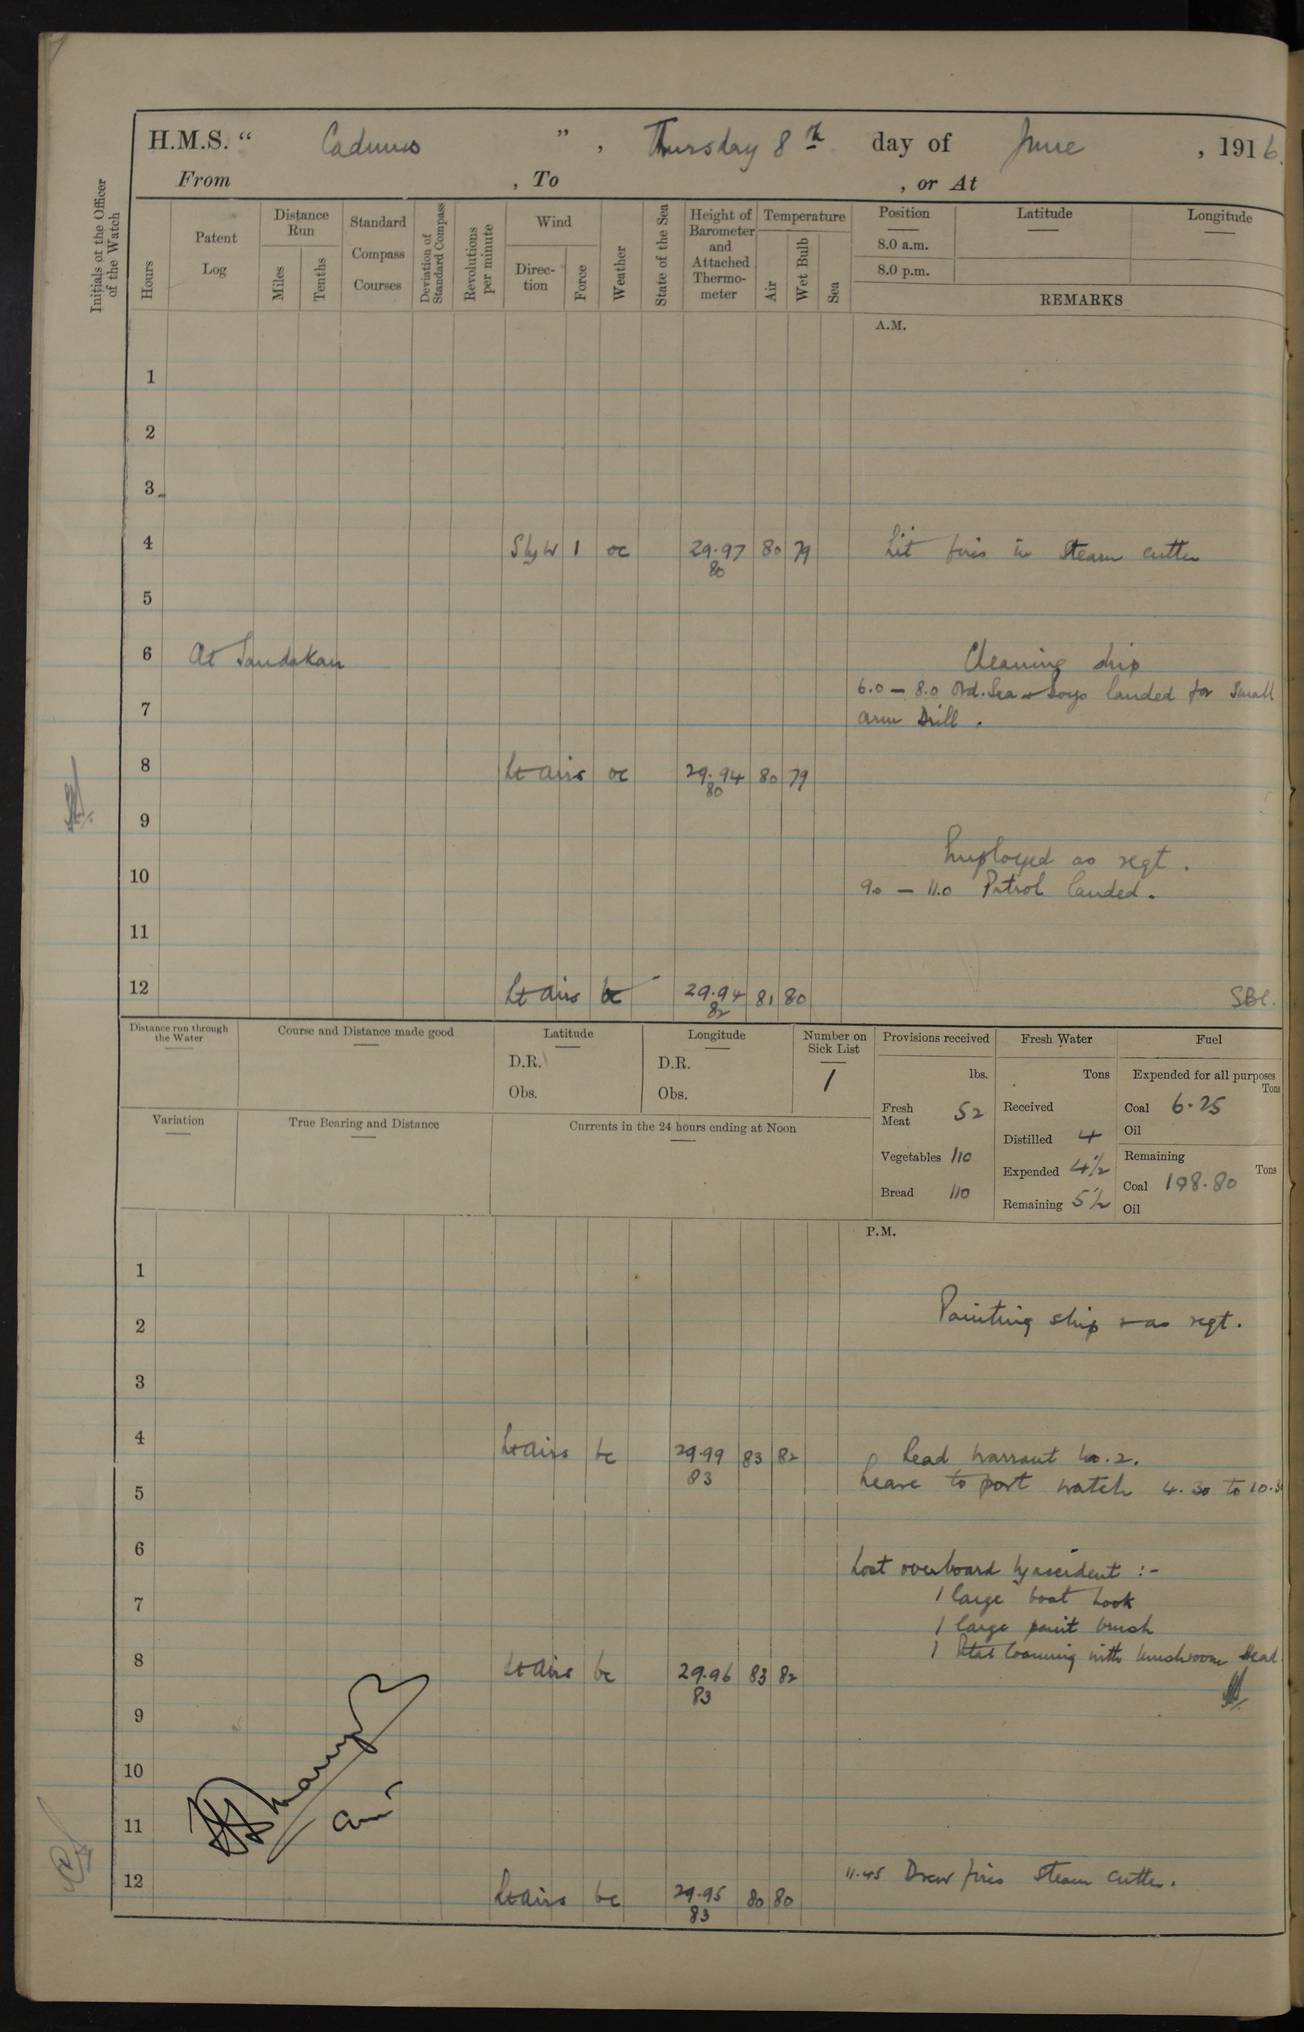 H.M.S. “ Cadmus ” , Thursday 8th day of June , 1916.
From , To , or At
Initials of the Officer of the Watch
Hours
Patent Log
Distance Run
Miles
Tenths
Standard Compass Courses
Deviation of Standard Compass
Revolutions per minute
Wind
Direc-tion
Force
Weather
State of the Sea
Height of Barometer and Attached Thermo-meter
Temperature
Air
Wet Bulb
Sea
Position
8.0 a.m.
8.0 p.m.
Latitude
Longitude
REMARKS
A.M.
1
2
3
4 S by W 1 oc 29.97 80 79 Lit fires in Steam cutter
80
5
6 At Sandakan Cleaning ship
6.0 – 8.0 Ord. Sea & boys landed for Small
7 arm Drill.
8 Lt airs oc 29.94 80 79
80
9
Employed as reqt.
10 9.0 – 11.0 Patrol landed.
11
12 Lt airs bc 29.94 81 80
82
Distance run through the Water
Course and Distance made good
Latitude
D.R.
Obs.
Longitude
D.R.
Obs.
Number on Sick List
1
Provisions received
lbs.
Fresh Meat 52
Vegetables 110
Bread 110
Fresh Water
Tons
Received
Distilled 4
Expended 4½
Remaining 5½
Fuel
Expended for all purposes
Tons
Coal 6.25
Oil
Remaining
Tons
Coal 198.80
Oil
Variation
True Bearing and Distance
Currents in the 24 hours ending at Noon
P.M.
1
2 Painting ship & as reqt.
3
4 Lt airs bc 29.99 83 82 Read Warrant No. 2.
83 Leave to port watch 4.30 to 10.30
5
6 Lost overboard by accident :-
7 1 large boat hook
1 large paint brush
8 1 with mushroom Head
Lt airs bc 29.96 83 82
83
9
10
11
11.45 Drew fires Steam Cutter.
12 Lt airs bc 29.95 80 80
83